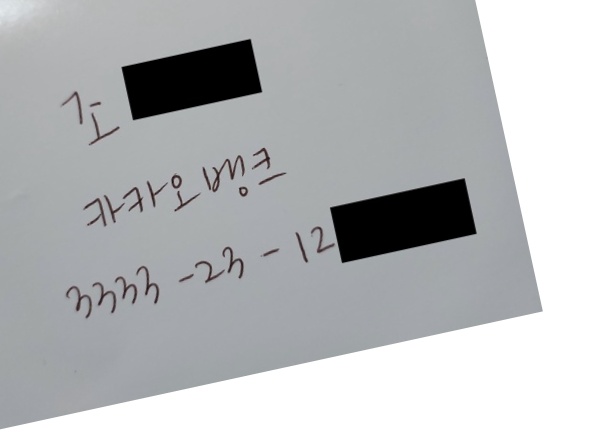 조
카카오뱅크
3333-23-12